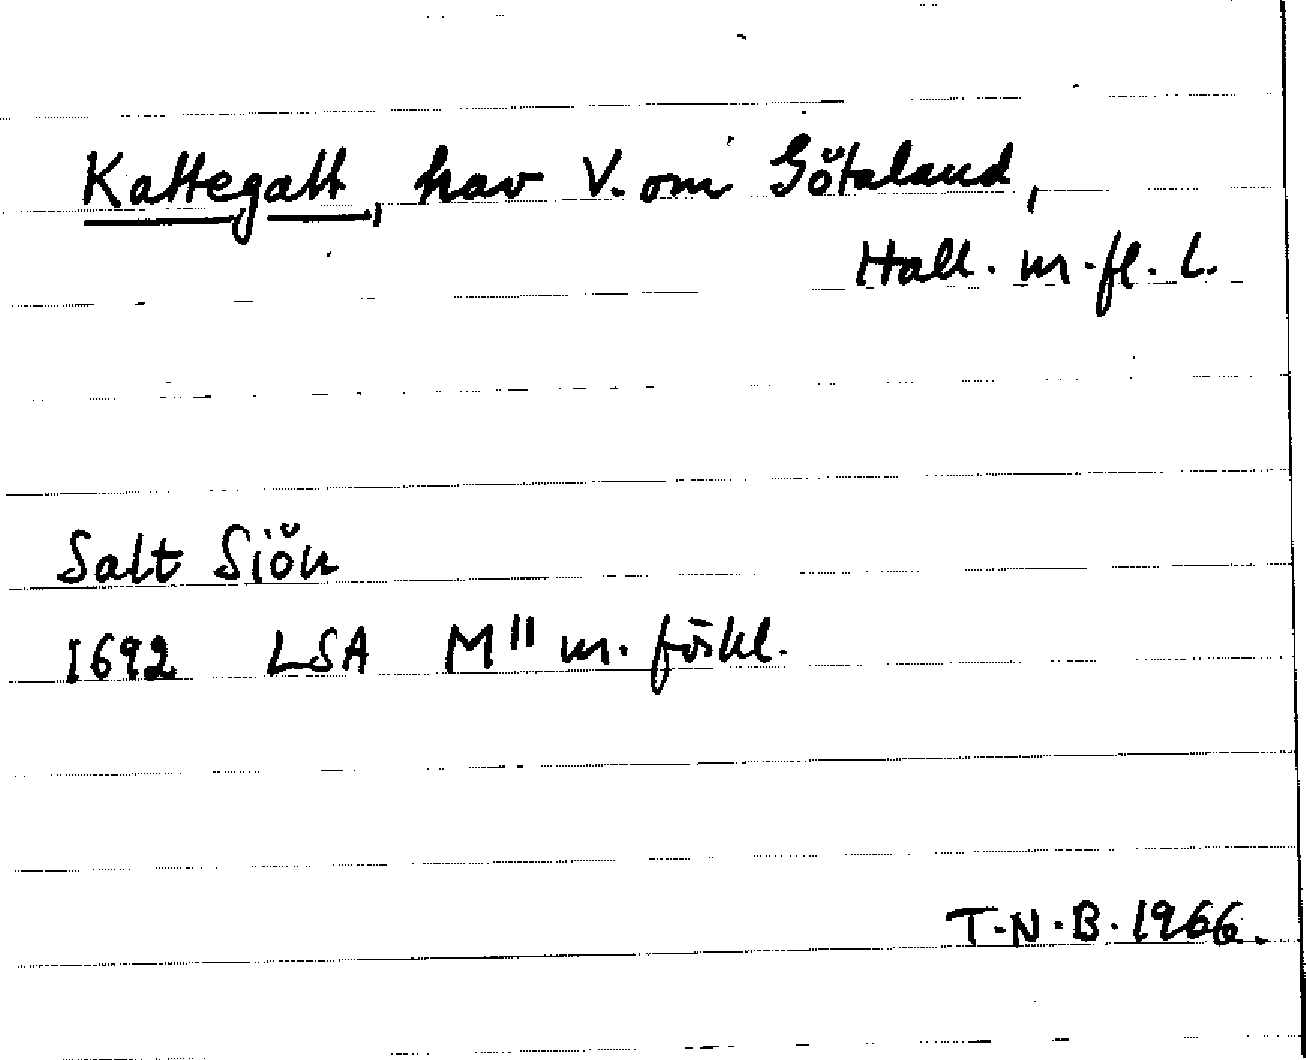 Kattegatt, hav V. om Götaland,
Hall. m.fl. l.
Salt Siön
1692 LSA M11 m. förkl.
T.N.B. 1966.